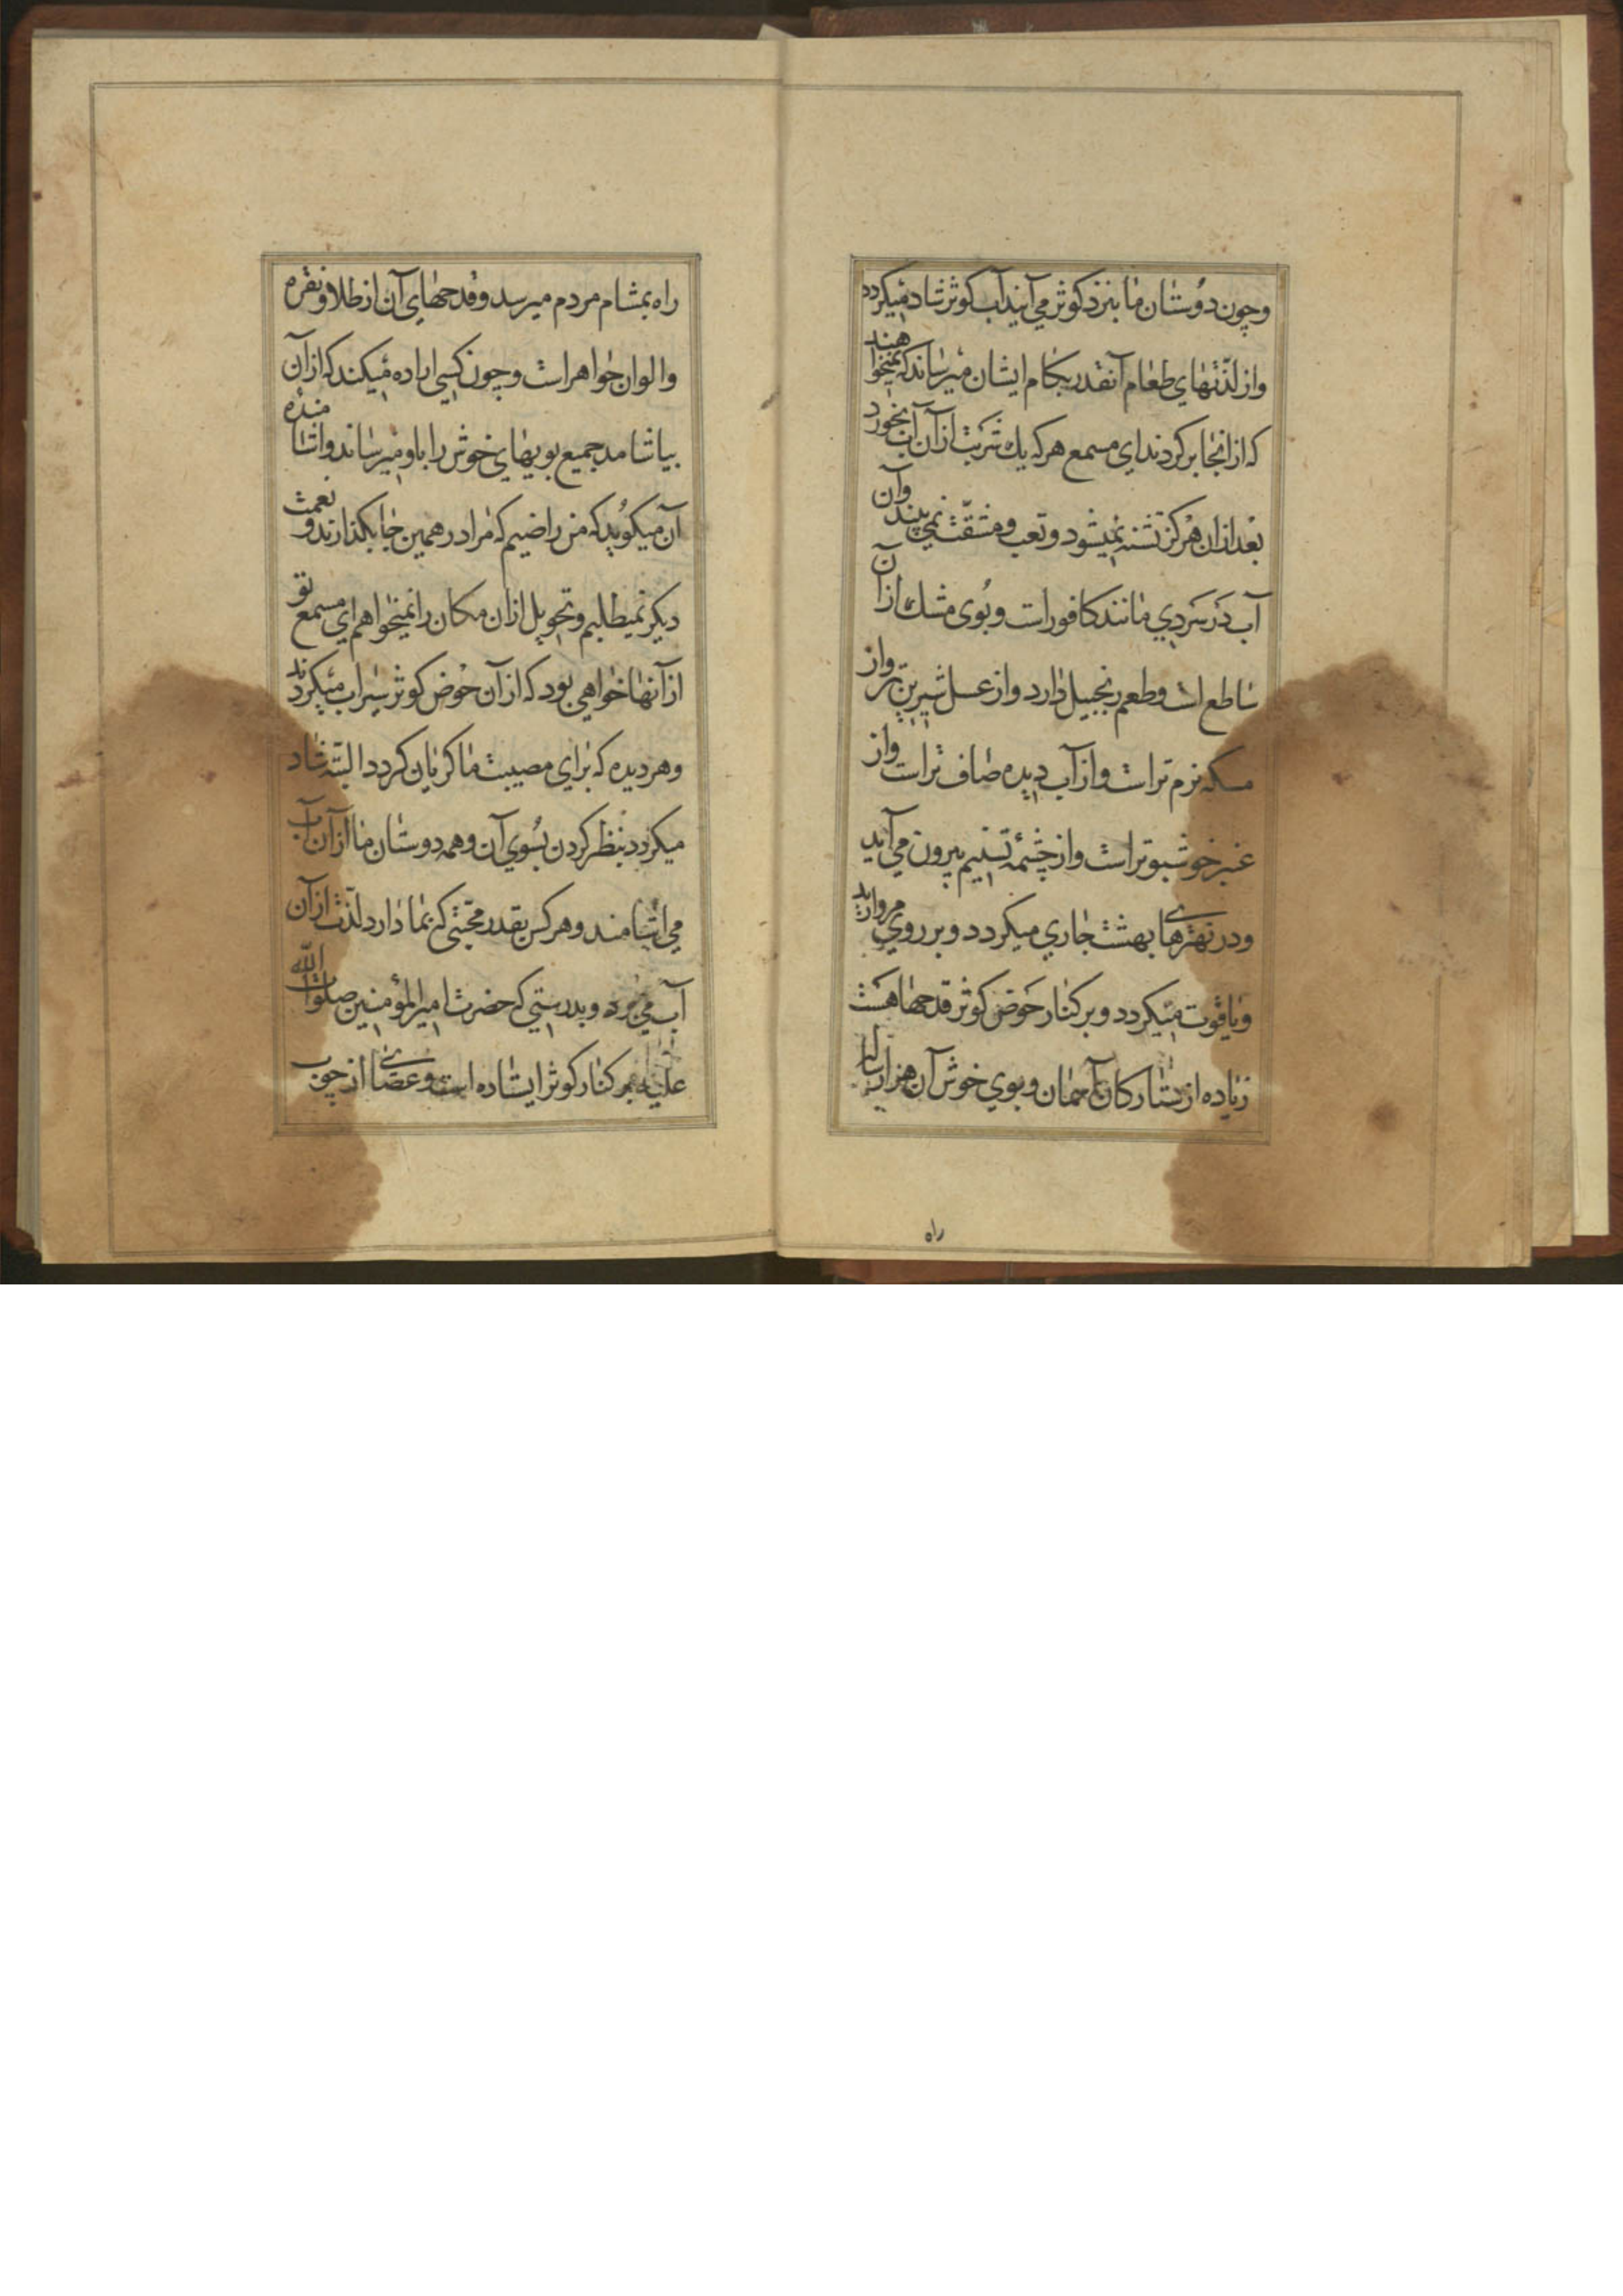 وچون دوستان ما بنزد کوثر می آیند آب کوثر شاد میکردد
واز لذتهای طعام آنقدر بکام ایشان میرساند که نمیخواهند
که از انجا برکردند ای مسمع هرکه یك شربت از آن آب بخورد
بعد ازان هرکز تشنه نمیشود و تعب و مشقت نمی بیند وآن
آب در سردی مانند کافور است و بوی مشك از آن
ساطع است وطعم زنجبیل دارد واز عسل شیرین تر واز
مسکه نرم تر است واز آب دیده صاف تر است واز
عنبر خوشبوتر است واز چشمه تسنیم بیرون می آید
ودر نهرهای بهشت جاری میکردد و بر روی مروارید
ویاقوت میکردد و بر کنار حوض کوثر قدحها هست
زیاده از ستارکان آسمان و بوی خوش آن هزار ساله
راه
راه بمشام مردم میرسد وقدحهای آن از طلا و نقره
والوان جواهر است و چون کسی اراده میکند که از آن
بیاشامد جمیع بویهای خوش را باو میرساند واشامنده
آن میکوید که من راضیم که مرا در همین جا بکذارند و نعمت
دیکر نمیطلبم و تحویل ازان مکان را نمیخواهم ای مسمع تو
از آنها خواهی بود که از آن حوض کوثر سیراب میکردند
وهر دیده که برای مصیبت ما کریان کردد البته شاد
میکردد بنظر کردن بسوی آن وهمه دوستان ما از آن آب
می اشامند وهر کس بقدر محبتی که بما دارد لذت از آن
آب می برد و بدرستی که حضرت امیرالمؤمنین صلوات الله
علیه بر کنار کوثر ایستاده است و عصائی از چوب